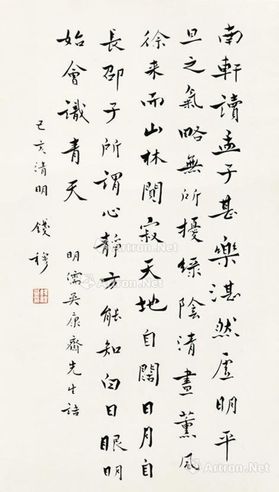 南軒讀孟子甚樂湛然虛明平
旦之氣略無所擾綠陰清晝薰風
徐來而山林闃寂天地自闊日月自
長邵子所謂心靜方能知白日眼明
始會識青天
明儒吳康齋先生語
己亥清明 錢穆
Artron.Net